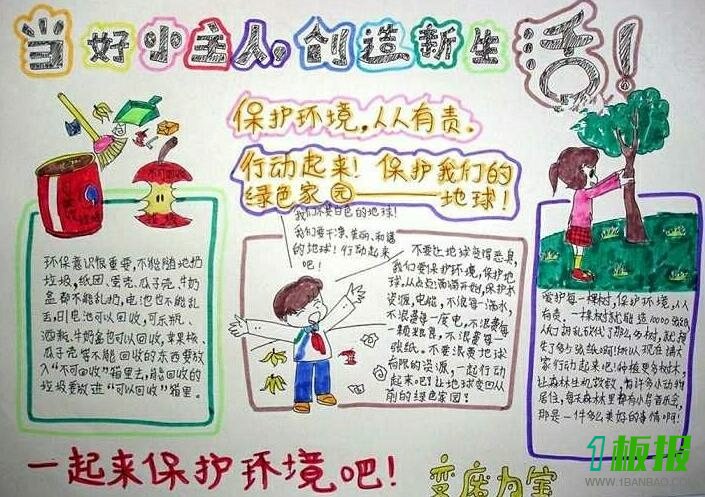 当好小主人,创造新生活!
保护环境,人人有责。
行动起来!保护我们的
绿色家园——地球!
不可回收
我们不要白色的地球!
我们要干净、美丽、和谐
的地球!行动起来
吧!
环保意识很重要,不能随地扔
垃圾,纸团、果壳、瓜子壳、牛奶
盒都不能乱扔,电池也不能乱
丢,旧电池可以回收,可乐瓶、
酒瓶、牛奶盒也可以回收,苹果核、
瓜子壳等不能回收的东西要放
入“不可回收”箱里去,能回收的
垃圾要放进“可以回收”箱里。
不要让地球变得恶臭,
我们要保护环境,保护地
球,从点点滴滴开始,保护水
资源,电能,不浪费一滴水,
不浪费一度电,不浪费每
一颗粮食,不浪费每一张
纸。不要浪费地球
有限的资源,一起行动
起来吧!让地球变回从
前的绿色家园!
爱护每一棵树,保护环境,人人
有责。一棵树就能造10000张纸
人们胡乱砍伐了那么多树,就
了多少张纸啊!所以,现在请大
家行动起来吧!种植更多树木
让森林生机勃勃,有许多小动物
居住,每天森林里都有小鸟音乐会,
那是一件多么美好的事情啊!
一起来保护环境吧!
变废为宝
1板报
WWW.1BANBAO.COM